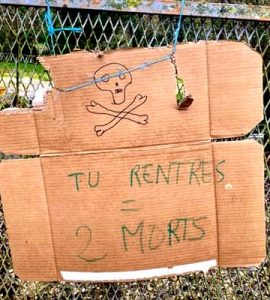 TU RENTRES
=
2 MORTS